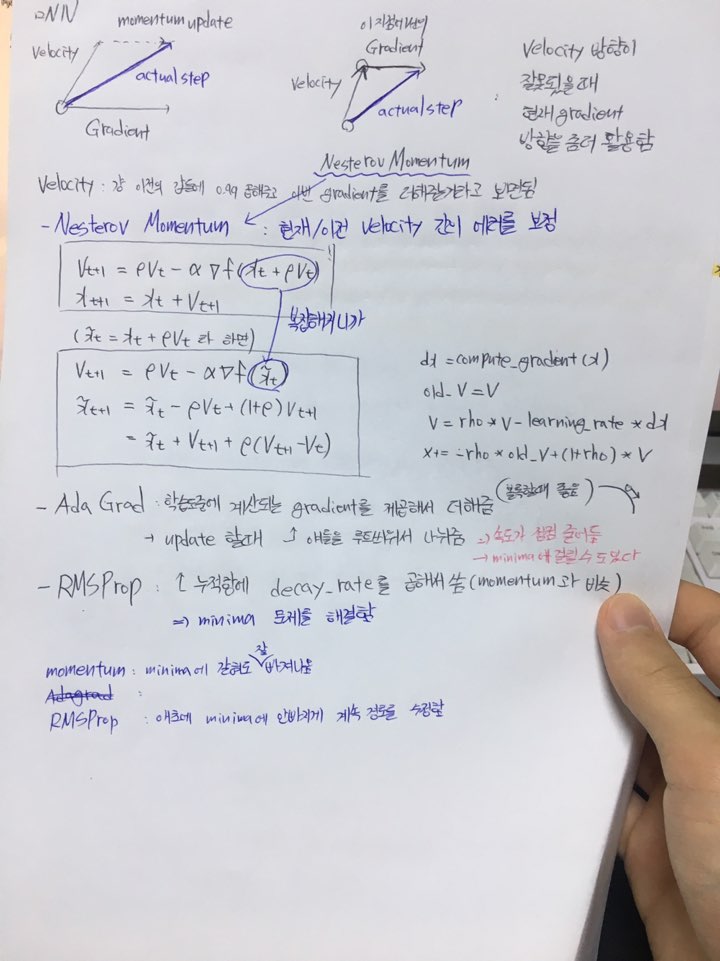 momentum update
Velocity
actual step
Gradient
이 지점에서의
Gradient
Velocity
actual step
Velocity 방향이
잘못됬을때
현재 gradient
방향을 좀더 활용함
Nesterov Momentum
Velocity : 걍 이전의 값들에 0.99 곱해주고 이번 gradient를 더해준거라고 보면됨
- Nesterov Momentum : 현재/이전 Velocity 간의 에러를 보정
V_{t+1} = ρV_t - α∇f(x_t + ρV_t)
x_{t+1} = x_t + V_{t+1}
복잡해지니까
(x̃_t = x_t + ρV_t 라 하면)
V_{t+1} = ρV_t - α∇f(x̃_t)
x̃_{t+1} = x̃_t - ρV_t + (1+ρ)V_{t+1}
= x̃_t + V_{t+1} + ρ(V_{t+1} - V_t)
dx = compute_gradient(x)
old_V = V
V = rho * V - learning_rate * dx
x += -rho * old_V + (1+rho) * V
- Ada Grad : 학습도중에 계산되는 gradient를 제곱해서 더해줌 (볼록할때 좋음)
→ update 할때 ↑ 얘들을 루트씌워서 나눠줌 ⇒ 속도가 점점 줄어듦
→ minima에 걸릴 수도 있다
- RMSProp : ↑ 누적합에 decay_rate를 곱해서 씀 (momentum과 비슷)
⇒ minima 문제를 해결함
momentum : minima에 갇혀도 잘 빠져나옴
Adagrad :
RMSProp : 애초에 minima에 안빠지게 계속 경로를 수정함